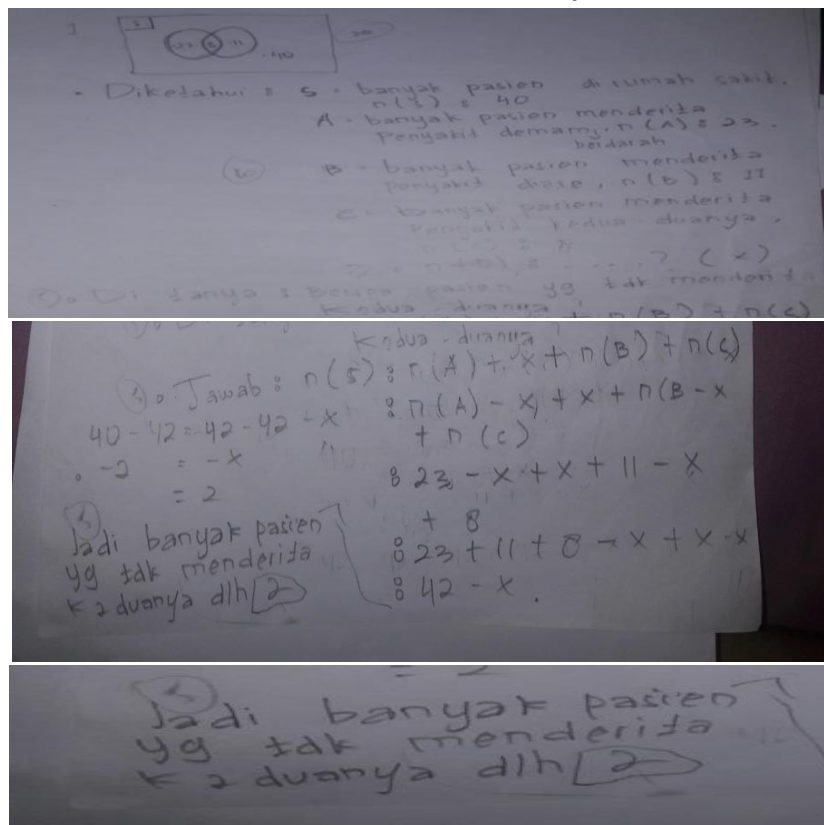 S
8 11
40
Diketahui : S = banyak pasien di rumah sakit.
n(S) : 40
A = banyak pasien menderita
Penyakit demam, n(A) : 23.
berdarah
B = banyak pasien menderita
penyakit diare, n(B) : 11
C = banyak pasien menderita
Penyakit kedua-duanya,
n(C) : 8
? (x)
Di tanya : Berapa pasien yg tdk menderita
kedua-duanya
+ n(B) + n(C)
Kedua-duanya
Jawab : n(S) : n(A) + x + n(B) + n(C)
40 - 42 = 42 - 42 - x : n(A) - x + x + n(B - x
+ n(C)
-2 = -x
: 23 - x + x + 11 - x
= 2
+ 8
Jadi banyak pasien
: 23 + 11 + 8 - x + x - x
yg tdk menderita
: 42 - x.
k2 duanya dlh 2
Jadi banyak pasien
yg tdk menderita
k2 duanya dlh 2